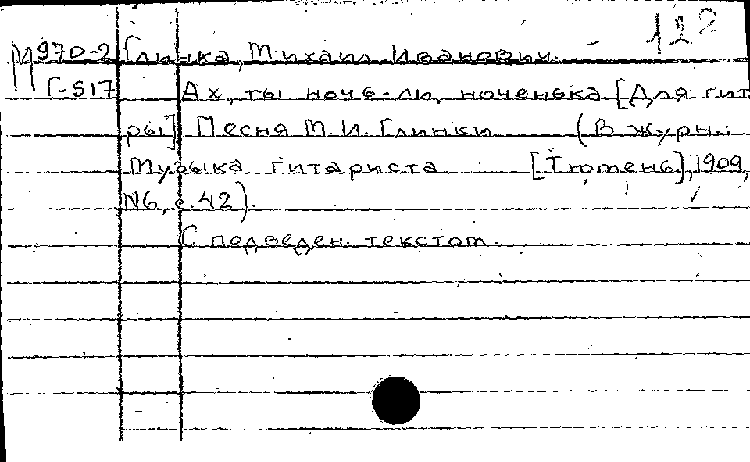 112
М 970-2 Глинка, Михаил Иванович.
Г-517 Ах, ты ноче-ли, ноченька [Для гит
ры] Песня М.И. Глинки (В журн.:
Музыка гитариста [Тюмень], 1909,
N6, с.42).
С подведен. текстом.